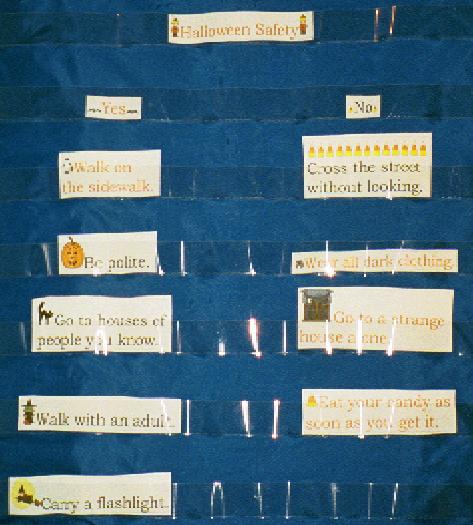 Halloween Safety
Yes
No
Walk on
the sidewalk.
Cross the street
without looking.
Be polite.
Wear all dark clothing.
Go to houses of
people you know.
Go to a strange
house alone.
Walk with an adult.
Eat your candy as
soon as you get it.
Carry a flashlight.